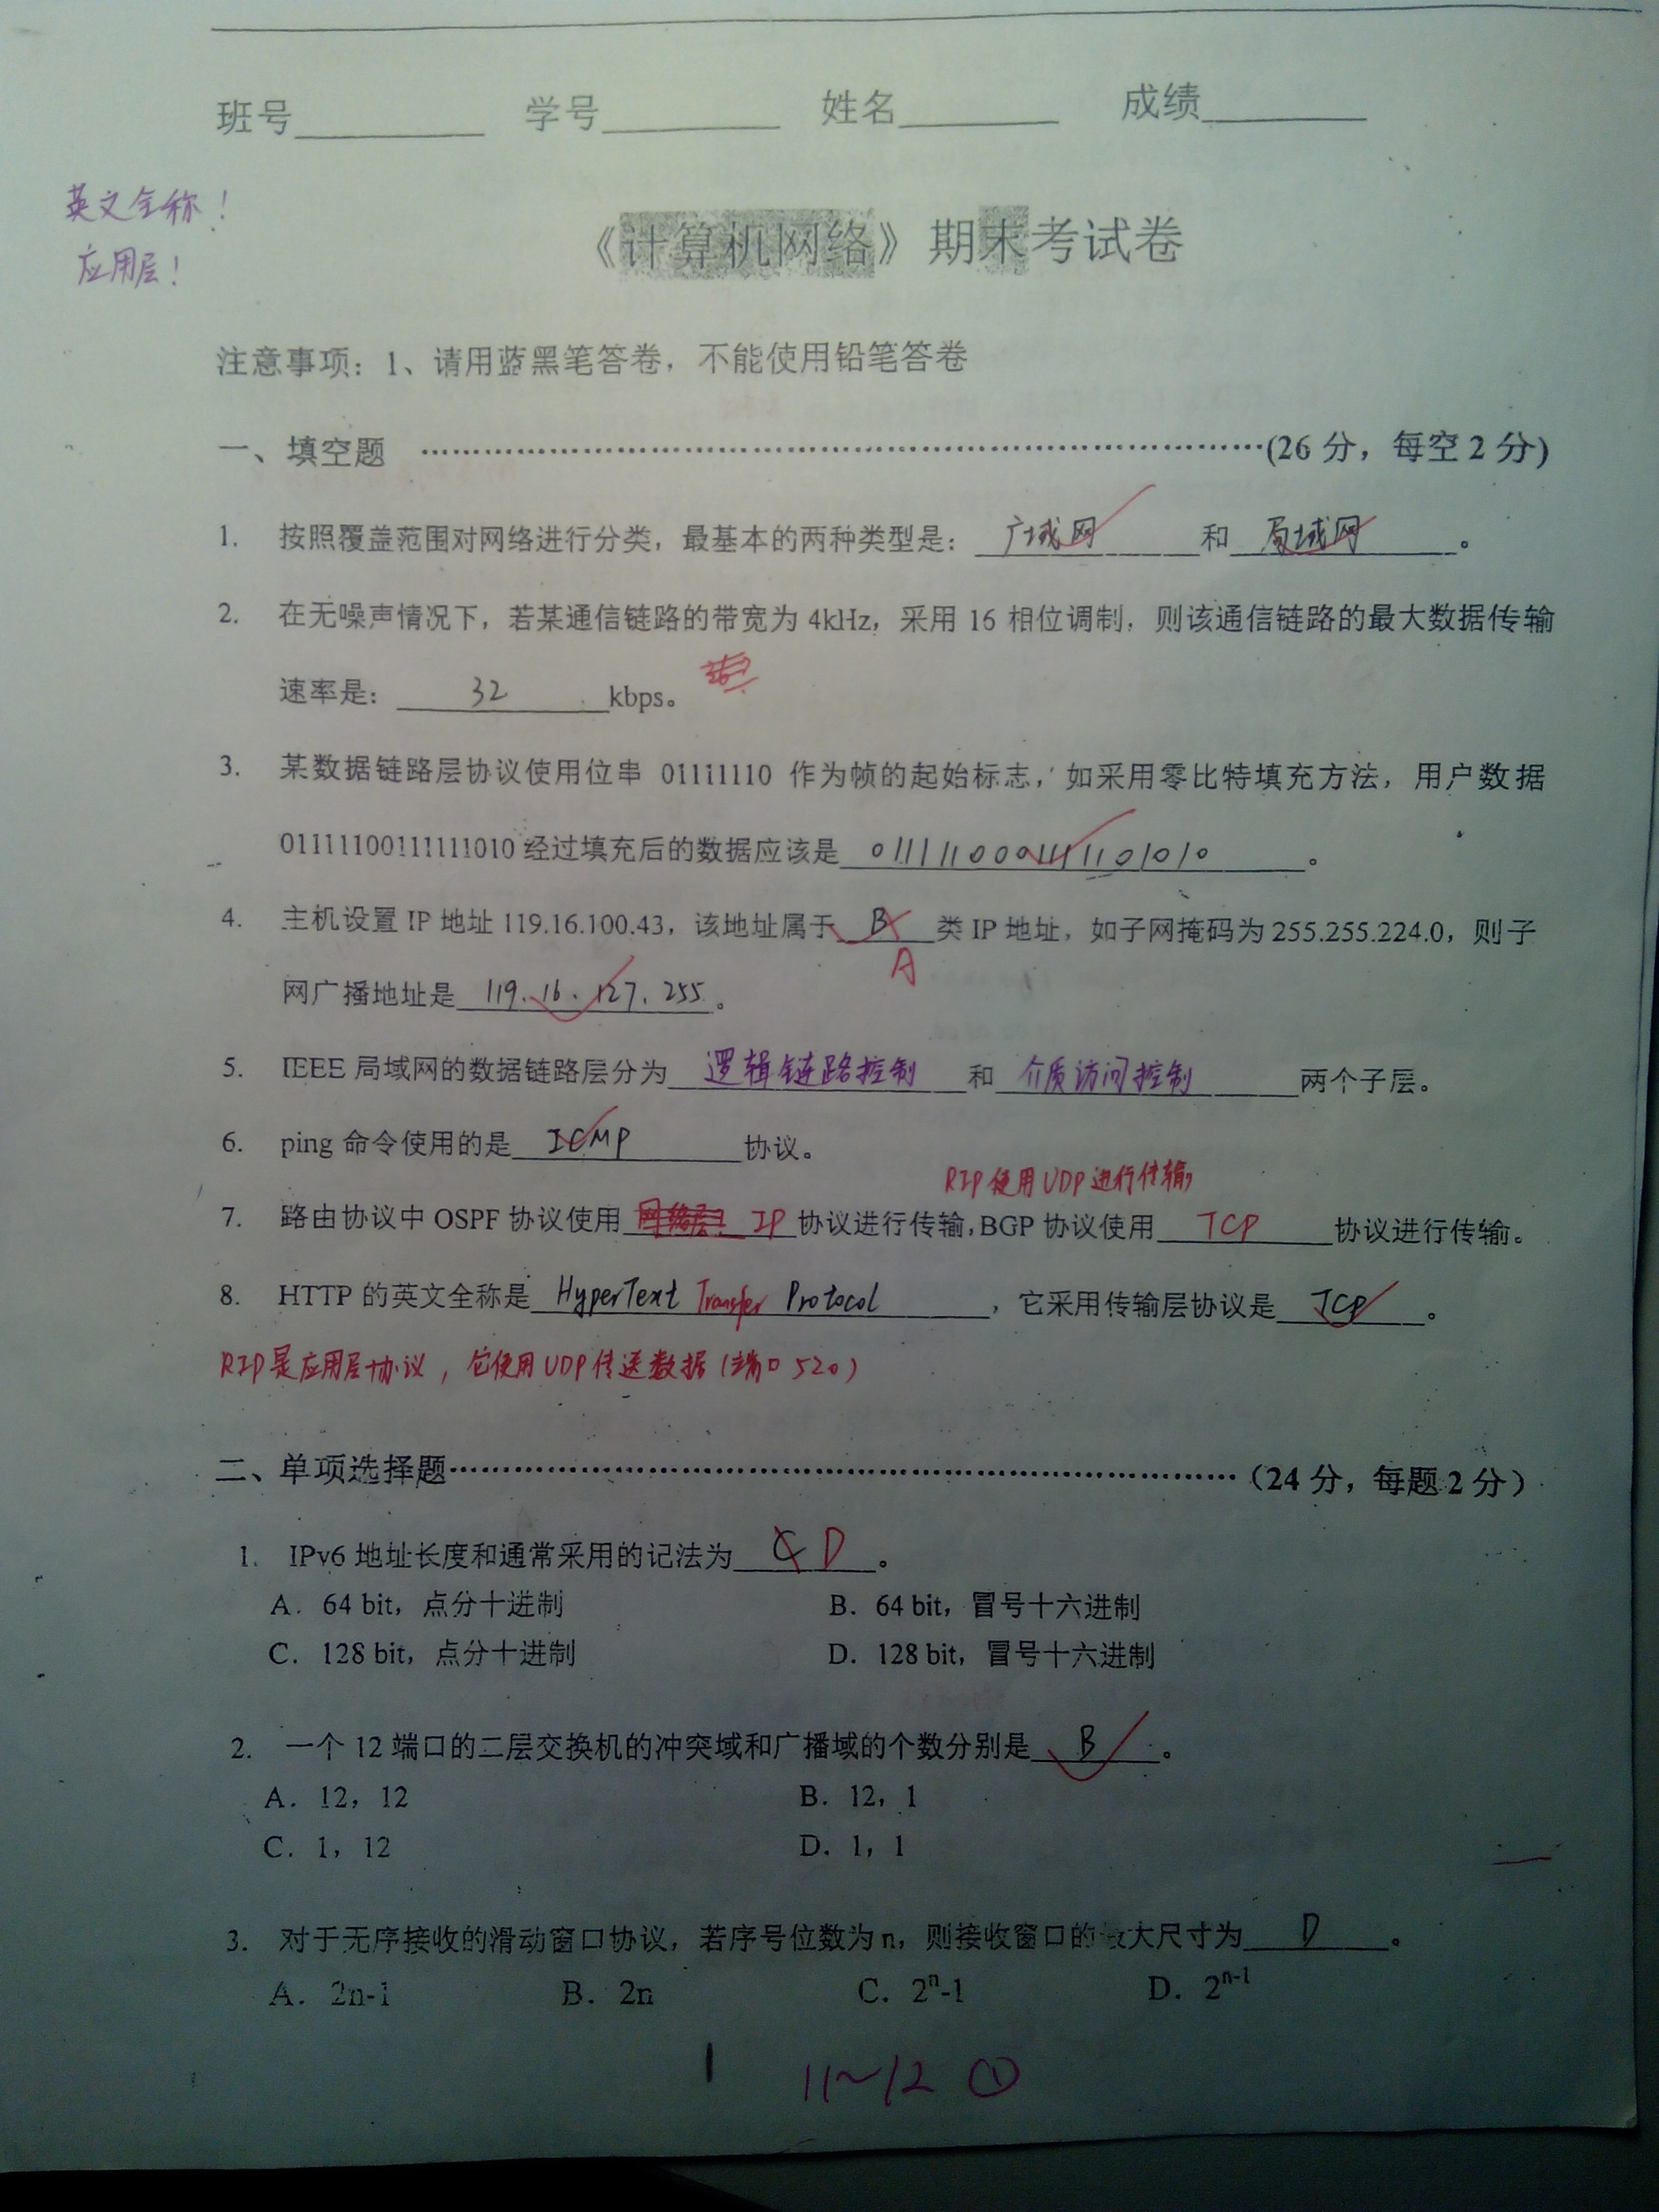 班号 学号 姓名 成绩
英文全称！
应用层！
《计算机网络》期末考试卷
注意事项：1、请用蓝黑笔答卷，不能使用铅笔答卷
一、填空题 ……………………………………………(26 分，每空 2 分)
1. 按照覆盖范围对网络进行分类，最基本的两种类型是： 广域网 和 局域网 。
2. 在无噪声情况下，若某通信链路的带宽为 4kHz，采用 16 相位调制，则该通信链路的最大数据传输
速率是： 32 kbps。
3. 某数据链路层协议使用位串 01111110 作为帧的起始标志，如采用零比特填充方法，用户数据
01111100111111010 经过填充后的数据应该是 0111110001111101010 。
4. 主机设置 IP 地址 119.16.100.43，该地址属于 B 类 IP 地址，如子网掩码为 255.255.224.0，则子
A
网广播地址是 119.16.127.255 。
5. IEEE 局域网的数据链路层分为 逻辑链路控制 和 介质访问控制 两个子层。
6. ping 命令使用的是 ICMP 协议。
RIP使用UDP进行传输
7. 路由协议中 OSPF 协议使用 网络层 IP 协议进行传输,BGP 协议使用 TCP 协议进行传输。
8. HTTP 的英文全称是 HyperText Transfer Protocol ，它采用传输层协议是 TCP 。
RIP是应用层协议，它使用UDP传送数据（端口520）
二、单项选择题……………………………………………（24 分，每题 2 分）
1. IPv6 地址长度和通常采用的记法为 C D 。
A. 64 bit，点分十进制 B. 64 bit，冒号十六进制
C. 128 bit，点分十进制 D. 128 bit，冒号十六进制
2. 一个 12 端口的二层交换机的冲突域和广播域的个数分别是 B 。
A. 12，12 B. 12，1
C. 1，12 D. 1，1
3. 对于无序接收的滑动窗口协议，若序号位数为 n，则接收窗口的最大尺寸为 D 。
A. 2n-1 B. 2n C. 2ⁿ-1 D. 2ⁿ⁻¹
1 11~12 ①